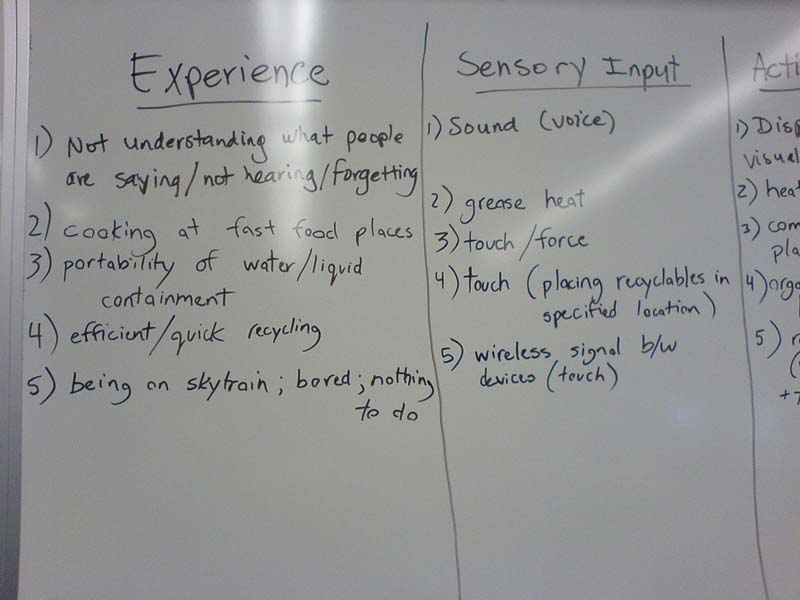 Experience
1) Not understanding what people
are saying/not hearing/forgetting
2) cooking at fast food places
3) portability of water/liquid
containment
4) efficient/quick recycling
5) being on skytrain; bored; nothing
to do
Sensory Input
1) Sound (voice)
2) grease heat
3) touch/force
4) touch (placing recyclables in
specified location)
5) wireless signal b/w
devices (touch)
1)
visual
2) heat
3)
4)
5)